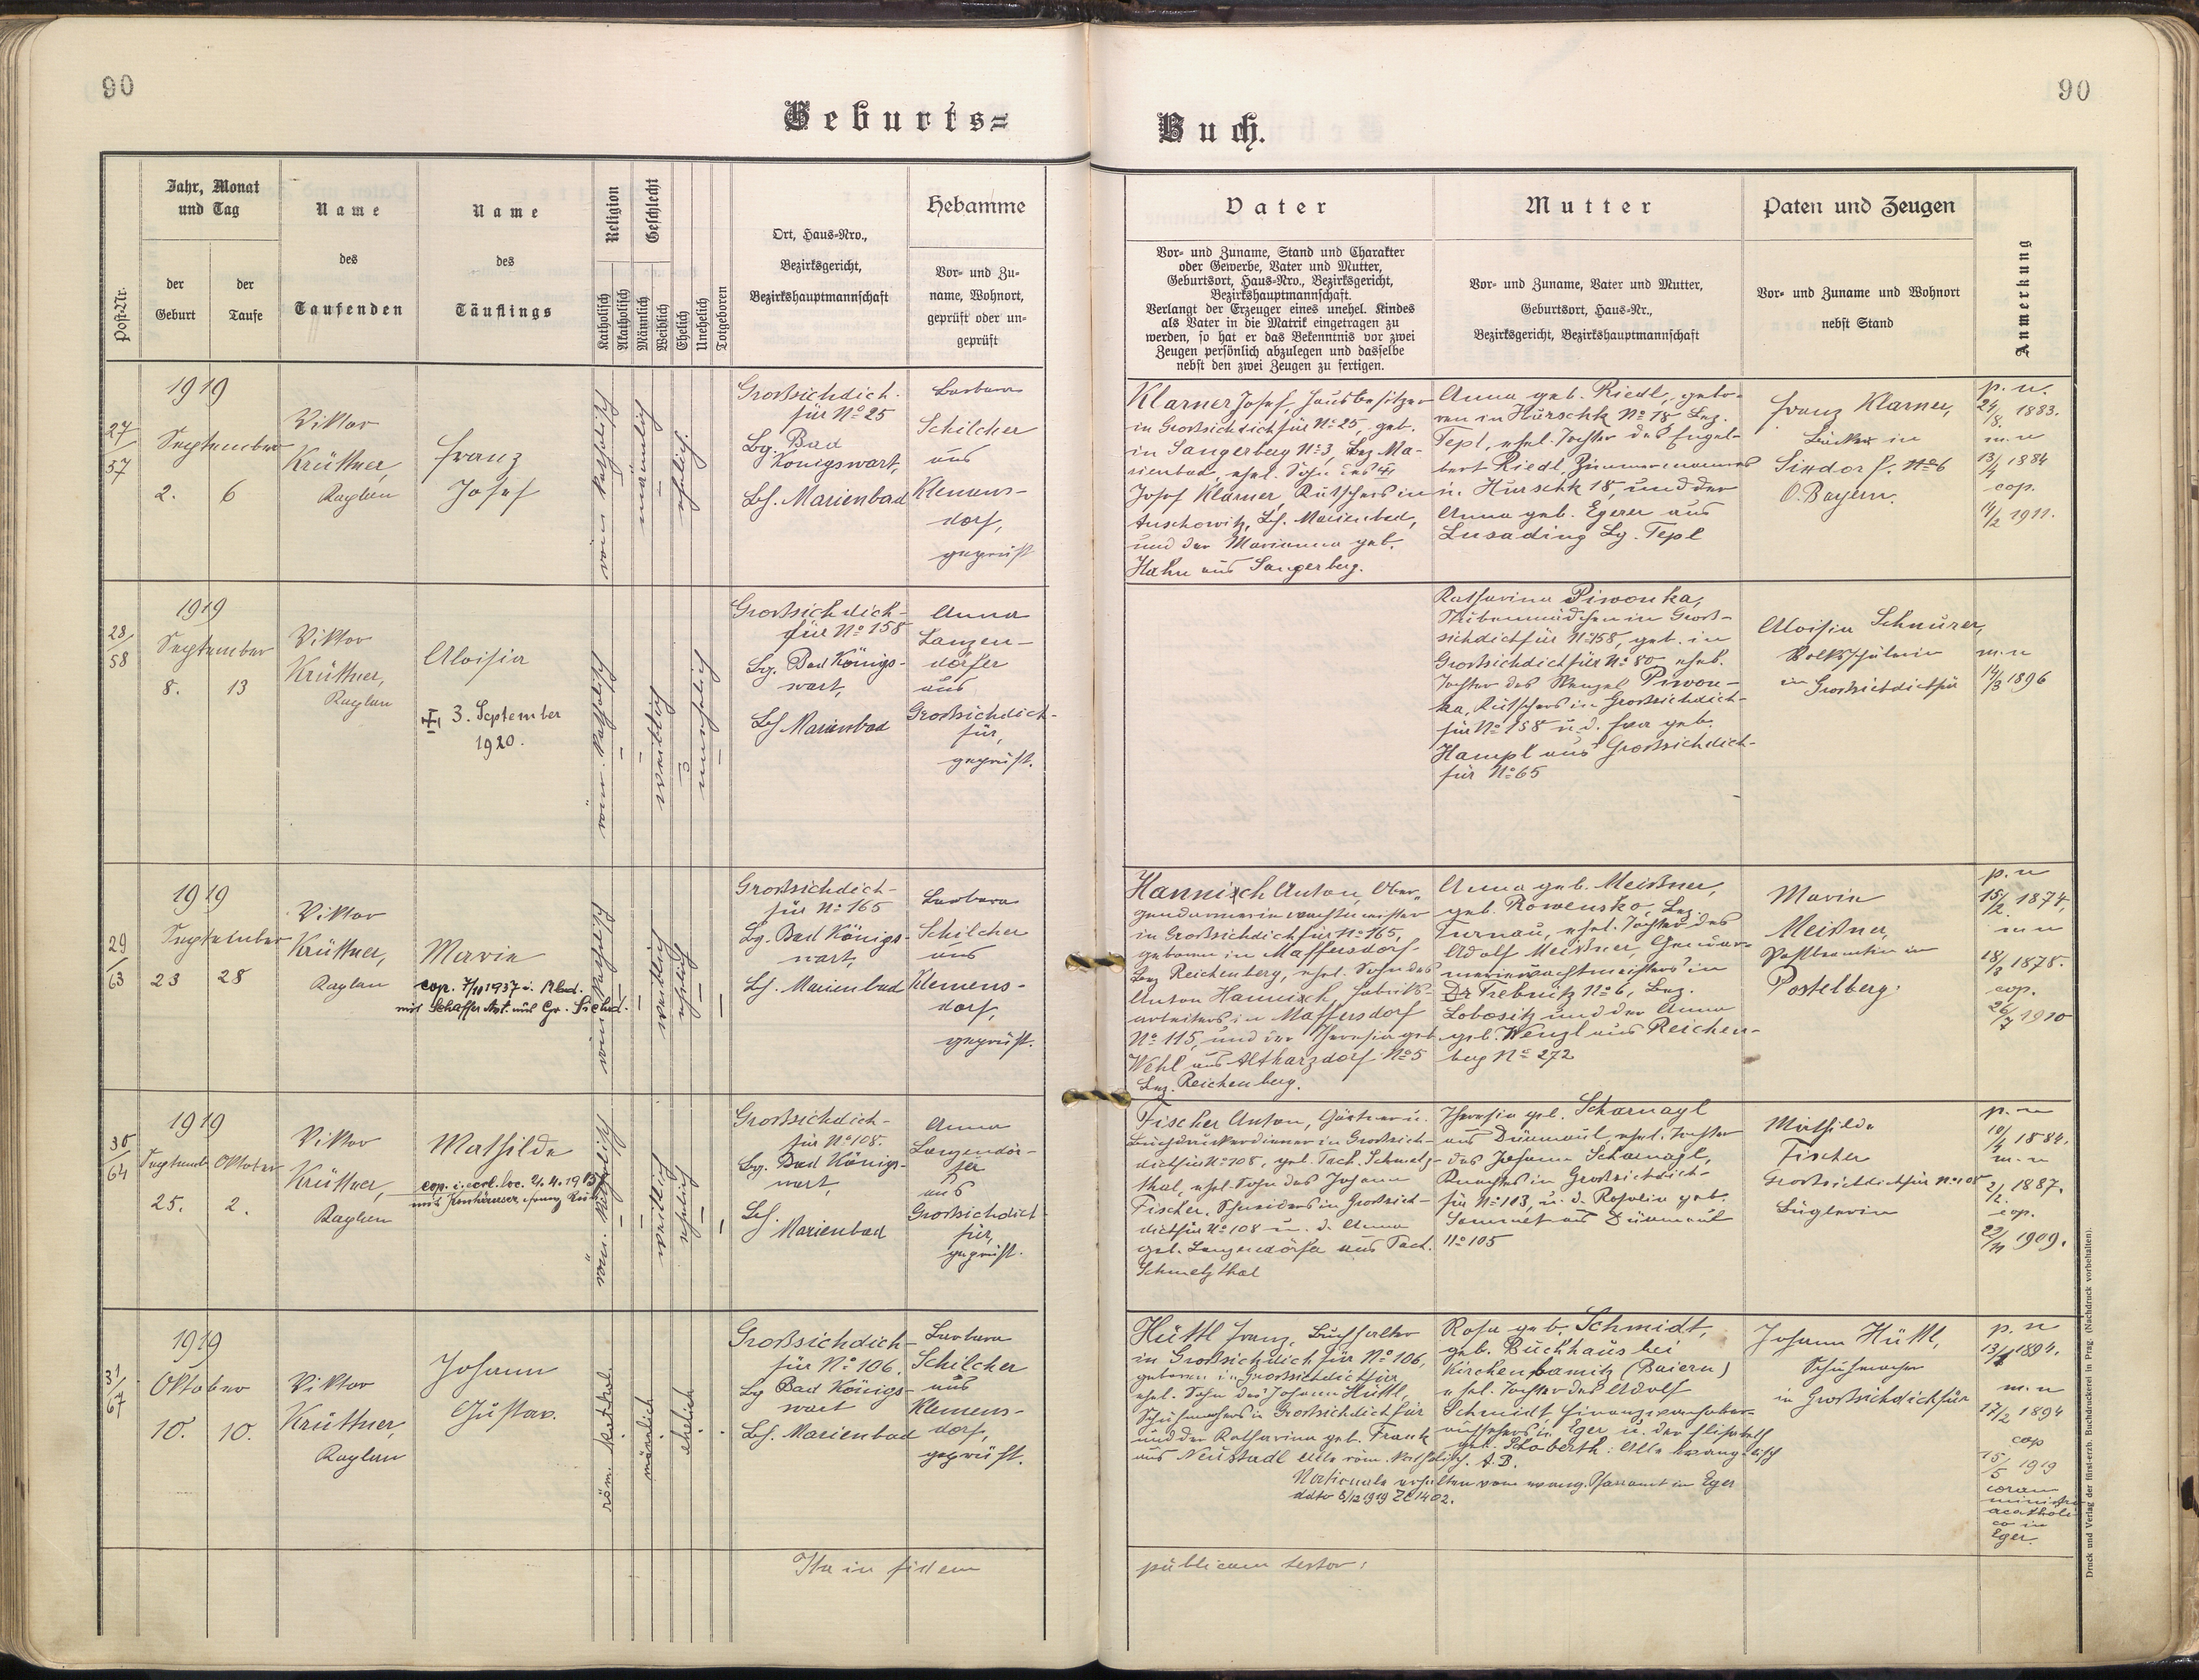 90
90
Geburts=
Buch.
Post-Nr.
Jahr, Monat
und Tag
der
Geburt
der
Taufe
Name
des
Taufenden
Name
des
Täuflings
Religion
Katholisch
Akatholisch
Geschlecht
Männlich
Weiblich
Ehelich
Unehelich
Totgeboren
Ort, Haus-Nro.,
Bezirksgericht,
Bezirkshauptmannschaft
Hebamme
Vor- und Zu-
name, Wohnort,
geprüft oder un-
geprüft
Vater
Vor- und Zuname, Stand und Charakter
oder Gewerbe, Vater und Mutter,
Geburtsort, Haus-Nro., Bezirksgericht,
Bezirkshauptmannschaft.
Verlangt der Erzeuger eines unehel. Kindes
als Vater in die Matrik eingetragen zu
werden, so hat er das Bekenntnis vor zwei
Zeugen persönlich abzulegen und dasselbe
nebst den zwei Zeugen zu fertigen.
Mutter
Vor- und Zuname, Vater und Mutter,
Geburtsort, Haus-Nr.,
Bezirksgericht, Bezirkshauptmannschaft
Paten und Zeugen
Vor- und Zuname und Wohnort
nebst Stand
Anmerkung
27/57
1919
September
2. 6
Viktor
Krüttner,
Kaplan
Franz
Josef
röm. katholisch
männlich
ehelich.
Großsichdich-
für No 25
Bg. Bad
Königswart,
Bh. Marienbad
Barbara
Schilcher
aus
Klemens-
dorf,
geprüft
Klarner Josef, Hausbesitzer
in Großsichdichfür No 25, geb.
in Sangerberg No 3, Bez. Ma-
rienbad, ehel. Sohn des
Josef Klarner, Kutschers in
Auschowitz, Bh. Marienbad,
und der Marianna geb.
Hahn aus Sangerberg.
Anna geb. Riedl, gebo-
ren in Hurschk No 18 Bez.
Tepl, ehel. Tochter des Engel-
bert Riedl, Zimmermannes
in Hurschk 18, und der
Anna geb. Egerer aus
Lusading Bg. Tepl
Franz Klarner,
Bäcker in
Sindorf No 6
O. Bayern.
p. n.
24/8. 1883.
m. n
13/4 1884
cop.
14/2 1911.
28/58
1919
September
8. 13
Viktor
Krüttner,
Kaplan
Aloisia
3. September
1920.
röm. katholisch
weiblich
unehelich
Großsichdich-
für No 158
Bg. Bad Königs-
wart,
Bh Marienbad
Anna
Langen-
dörfer
aus
Großsichdich-
für,
geprüft.
Katharina Piwonka,
Stubenmädchen in Groß-
sichdichfür No 158, geb. in
Großsichdichfür No 80, ehel.
Tochter des Wenzel Piwon-
ka, Kutschers in Großsichdich-
für No 158 u. d. Eva geb.
Hampl aus Großsichdich-
für No 65
Aloisia Schnurer,
Volksschülerin
in Großsichdichfür
m. n
14/3 1896
29/63
1919
September
23 28
Viktor
Krüttner,
Kaplan
Marie
cop. 7/10 1937 i. Mbad.
mit Schaffer Ant. aus Gr. Sichd.
röm. katholisch
weiblich
ehelich
Großsichdich-
für No 165
Bg. Bad Königs-
wart,
Bh. Marienbad
Barbara
Schilcher
aus
Klemens-
dorf,
geprüft.
Hannisch Anton, Ober-
gendarmeriewachtmeister
in Großsichdichfür No 165,
geboren in Maffersdorf
Bez Reichenberg, ehel. Sohn des
Anton Hannisch, Fabriks-
arbeiters in Maffersdorf
No 115, und der Theresia geb
Wehl aus Altharzdorf No 5
Bez. Reichenberg.
Anna geb. Meißner,
geb. Rowensko, Bez.
Turnau, ehel. Tochter des
Adolf Meißner, Gendar-
meriewachtmeisters in
Trebnitz No 6, Bez.
Lobositz und der Anna
geb. Wenzl aus Reichen-
berg No 272
Marie
Meißner,
Postbeamtin in
Postelberg.
p. n
15/2. 1874,
m n
18/3 1878.
cop.
26/7 1910
30/64
1919
Septemb. Oktober
25. 2.
Viktor
Krüttner,
Kaplan
Mathilde
röm. katholisch
weiblich
ehelich
Großsichdich-
für No 108.
Bg. Bad Königs-
wart,
Bh.
Marienbad
Anna
Langendör-
fer
aus
Großsichdich
für,
geprüft.
Fischer Anton, Gärtner u.
Buchdruckerdiener in Großsich-
dichfür No 108, geb. Tach. Schmelz-
thal, ehel. Sohn des Johann
Fischer, Schneiders in Großsich-
dichfür No 108 u. d. Anna
geb. Langendörfer aus Tach.
Schmelzthal
Theresia geb. Scharnagl
aus Dürmaul, ehel. Tochter
des Johann Scharnagl,
in Großsichdich-
für No 113, u. d. Rosalia geb.
aus Dürmaul
No 105
Mathilde
Fischer
Großsichdichfür No 108
Büglerin
p. n
10/4 1884.
m. n
2/2. 1887.
cop.
22/11 1909.
31/67
1919
Oktober
10. 10.
Viktor
Krüttner,
Kaplan
Johann
Gustav.
röm. kathol.
männlich
ehelich
Großsichdich-
für No 106.
Bg Bad Königs-
wart
Bh. Marienbad
Barbara
Schilcher
aus
Klemens-
dorf,
geprüft.
Hüttl Franz, Buchhalter
in Großsichdichfür No 106,
geboren in Großsichdichfür
ehel. Sohn des Johann Hüttl,
Schuhmachers in Großsichdichfür
und der Katharina geb. Frank
aus Neustadl alle röm. katholisch.
Rosa geb. Schmidt,
geb. Buchhaus bei
Kirchenlamitz (Baiern)
ehel. Tochter des Adolf
Schmidt, Finanzoberauf-
in Eger u. der Elisabeth
geb. Stoberth: Alle evangelisch
A. B.
Nationale erhalten vom evang. Pfarramt in Eger
ddto 8/12 1919 Zl 1402.
Johann Hüttl,
Schuhmacher
in Großsichdichfür
p. n
13/1 1894.
m. n
17/2 1894
cop
15/5 1919
coram
ministro
acatholi-
co in
Eger.
Ita in fidem
publicam testor:
Druck und Verlag der fürst-erzb. Buchdruckerei in Prag. (Nachdruck vorbehalten).